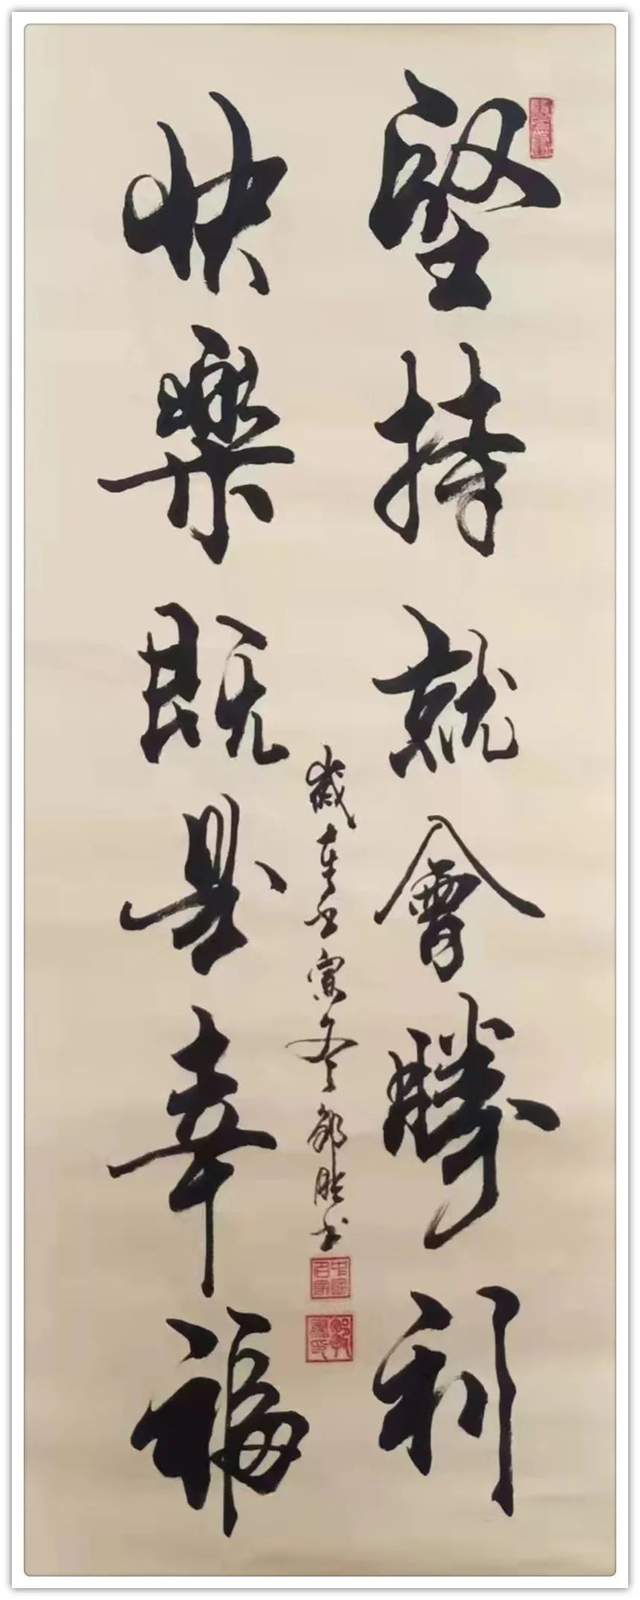 堅持就會勝利
快樂既是幸福
歲在壬寅冬